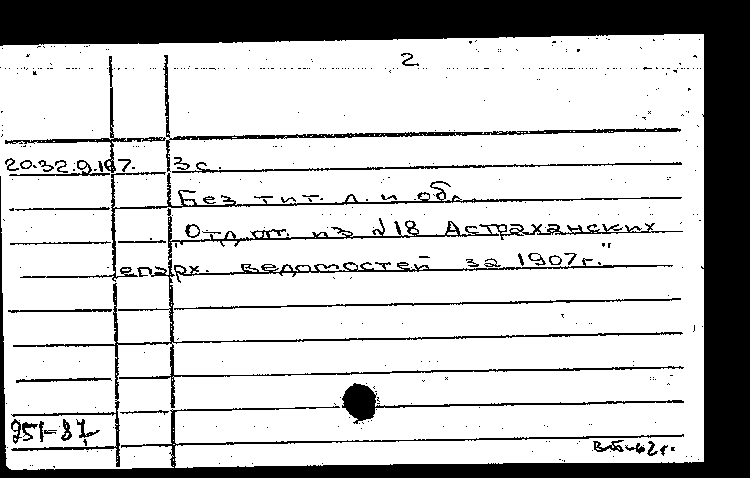 2
20.32.9.167. 3 с.
Без тит. л. и обл.
"Отд. от. из №18 Астраханских
епарх. ведомостей за 1907г."
951-87